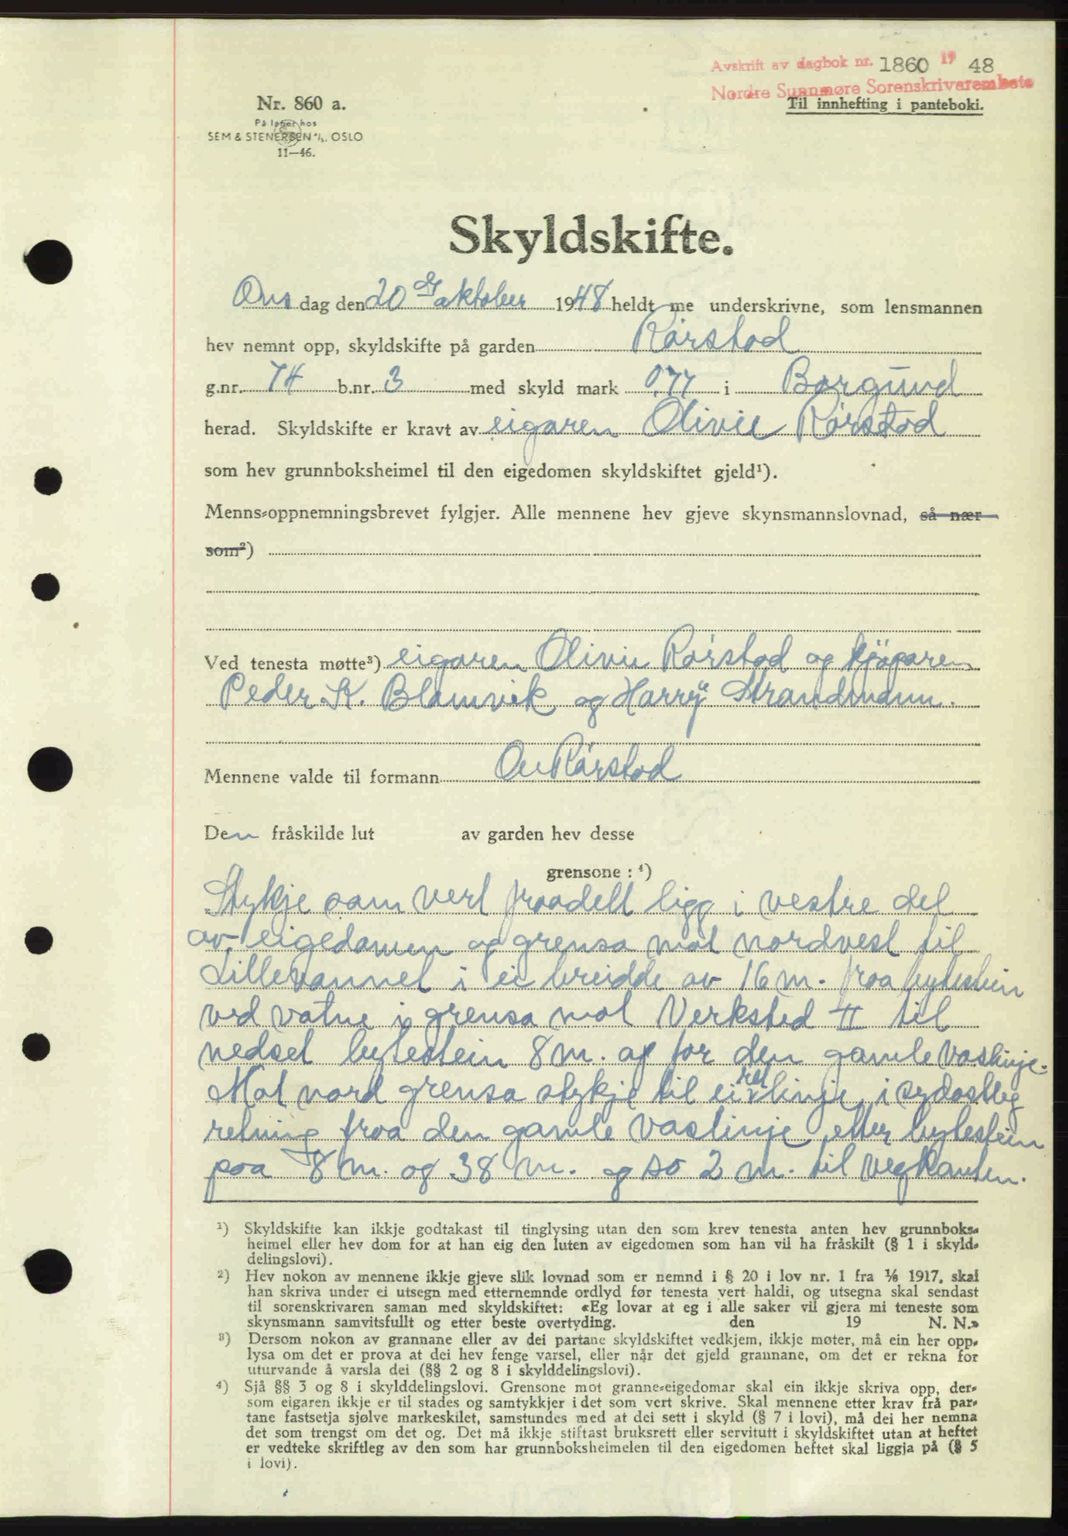 Avskrift av dagbok nr. 1860 19 48
Nordre Sunnmøre Sorenskriverembete
Til innhefting i panteboki.
Nr. 860 a.
På lager hos
SEM & STENERSEN A/S. OSLO
11—46.
Skyldskifte.
Ons dag den 20 de oktober 1948 heldt me underskrivne, som lensmannen
hev nemnt opp, skyldskifte på garden Rørstad
g.nr. 74 b.nr. 3 med skyld mark 0,77 i Borgund
herad. Skyldskifte er kravt av eigaren Olivie Rørstad
som hev grunnboksheimel til den eigedomen skyldskiftet gjeld¹).
Menns-oppnemningsbrevet fylgjer. Alle mennene hev gjeve skynsmannslovnad, så nær
som²)
Ved tenesta møtte³) eigaren Olivie Rørstad og kjøparen
Peder K. Blomvik og Harry Strandmann.
Mennene valde til formann Ole Rørstad
Den fråskilde lut av garden hev desse
grensone : ⁴)
Stykje som vert fraadelt ligg i vestre del
av eigedomen og grensa mot nordvest til
Lillevannet i ei breidde av 16 m. fraa bytestein
ved vatne i grensa mot Verksted II til
nedset bytestein 8 m. og for den gamle vaslinje.
Mot nord grensa stykje til ei ret linje i sydøstleg
retning fraa den gamle vaslinje etter bytestein
paa 8 m. og 38 m. og so 2 m. til vegkanten.
¹) Skyldskifte kan ikkje godtakast til tinglysing utan den som krev tenesta anten hev grunnboks-
heimel eller hev dom for at han eig den luten av eigedomen som han vil ha fråskilt (§ 1 i skyld-
delingslovi).
²) Hev nokon av mennene ikkje gjeve slik lovnad som er nemnd i § 20 i lov nr. 1 fra 1/6 1917, skal
han skriva under ei utsegn med etternemnde ordlyd før tenesta vert haldi, og utsegna skal sendast
til sorenskrivaren saman med skyldskiftet: «Eg lovar at eg i alle saker vil gjera mi teneste som
skynsmann samvitsfullt og etter beste overtyding. den 19 N. N.»
³) Dersom nokon av grannane eller av dei partane skyldskiftet vedkjem, ikkje møter, må ein her opp-
lysa om det er prova at dei hev fenge varsel, eller når det gjeld grannane, om det er rekna for
uturvande å varsla dei (§§ 2 og 8 i skylddelingslovi).
⁴) Sjå §§ 3 og 8 i skylddelingslovi. Grensone mot granne-eigedomar skal ein ikkje skriva opp, der-
som eigaren ikkje er til stades og samtykkjer i det som vert skrive. Skal mennene etter krav frå par-
tane fastsetja sjølve markeskilet, samstundes med at dei sett i skyld (§ 7 i lovi), må dei her nemna
det som trengst om det og. Det må ikkje stiftast bruksrett eller servitutt i skyldskiftet utan at heftet
er vedteke skriftleg av den som har grunnboksheimelen til den eigedomen heftet skal liggja på (§ 5
i lovi).